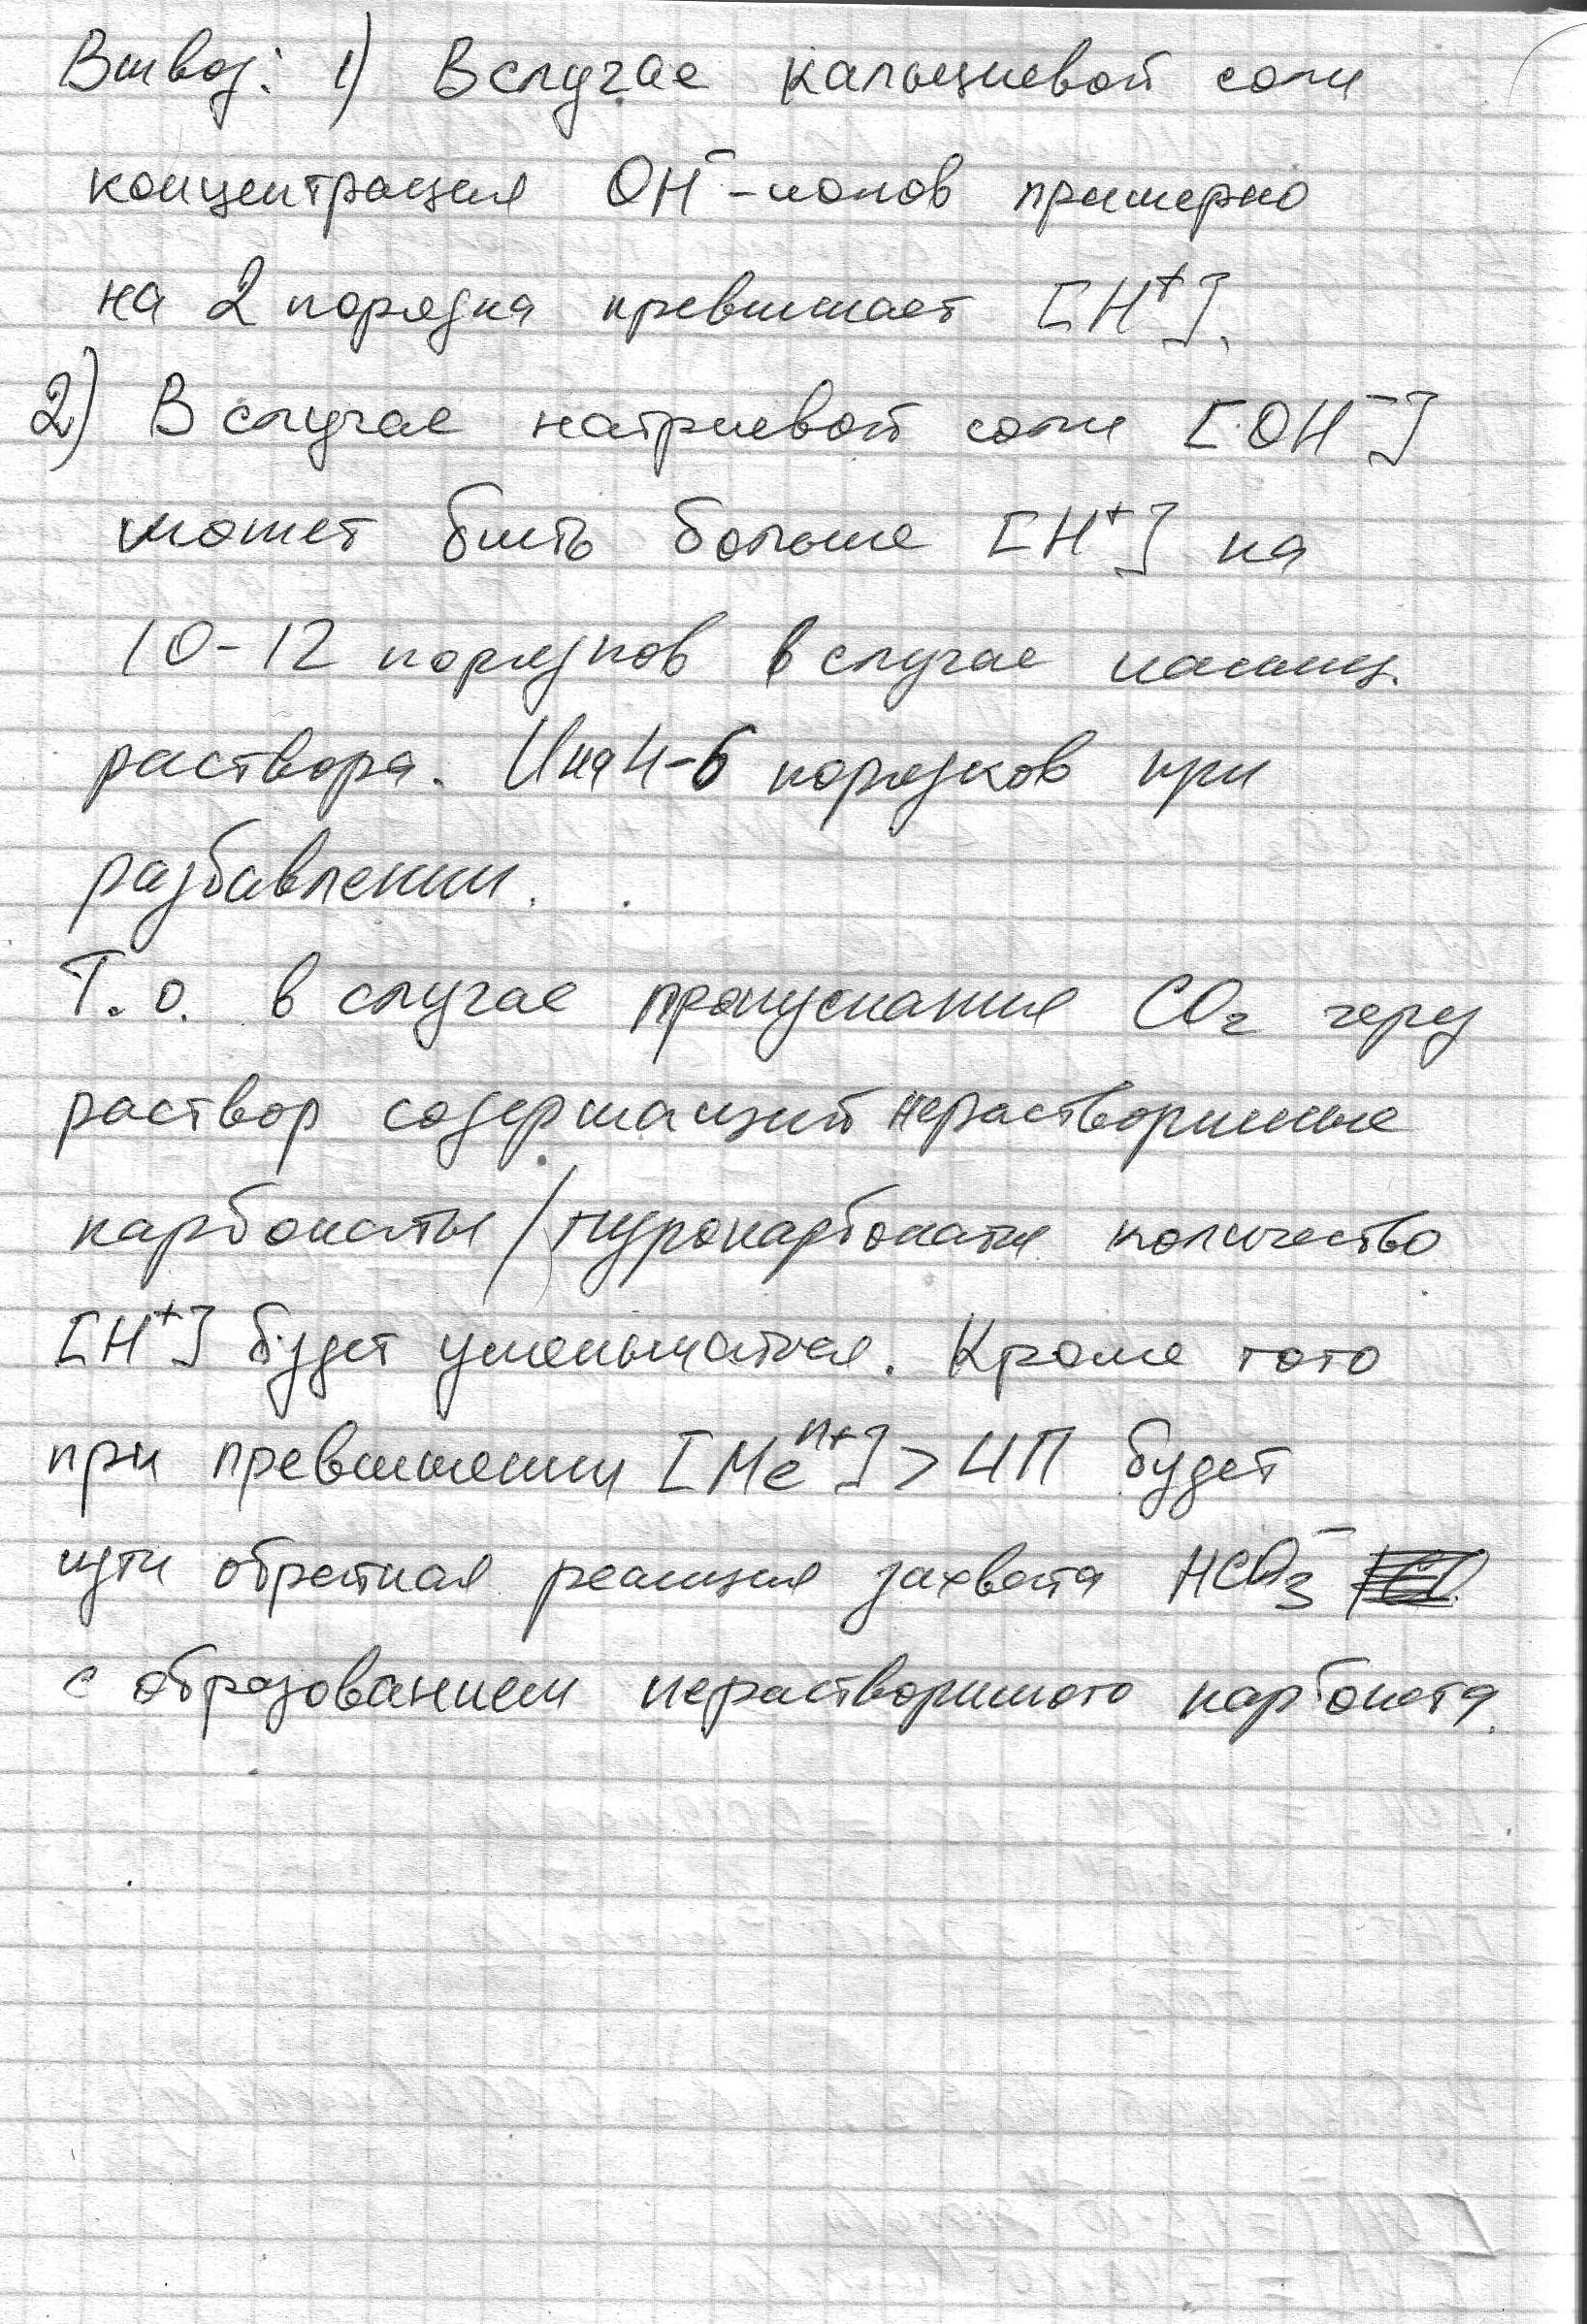 Вывод: 1) В случае кальциевой соли
концентрация OH⁻-ионов примерно
на 2 порядка превышает [H⁺].
2) В случае натриевой соли [OH⁻]
может быть больше [H⁺] на
10-12 порядков в случае насыщ.
раствора. И на 4-6 порядков при
разбавлении.
Т.о. в случае пропускания CO₂ через
раствор содержащий нерастворимые
карбонаты/гидрокарбонаты количество
[H⁺] будет уменьшаться. Кроме того
при превышении [Meⁿ⁺] > ИП будет
идти обратная реакция захвата HCO₃⁻
с образованием нерастворимого карбоната.